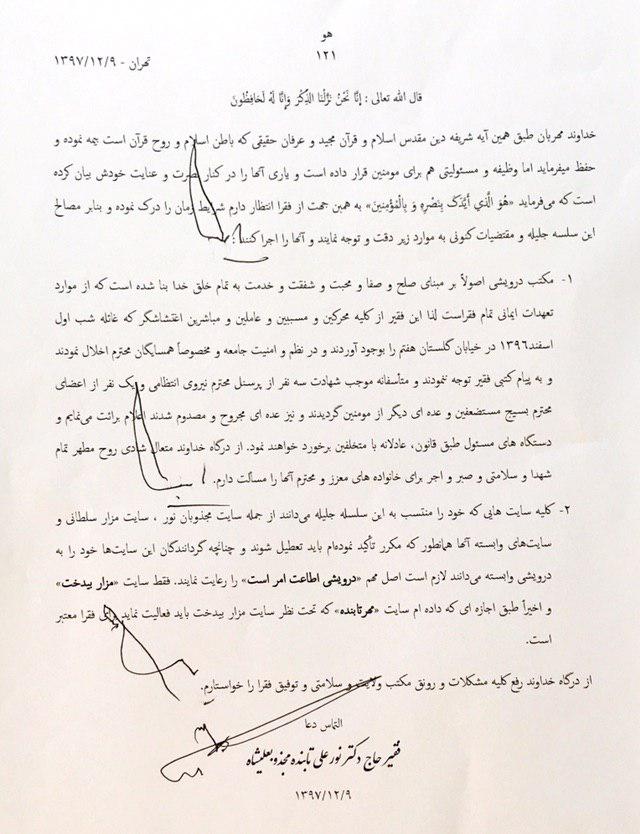 هو
۱۲۱
تهران - ۱۳۹۷/۱۲/۹
قال الله تعالی : إِنَّا نَحْنُ نَزَّلْنَا الذِّكْرَ وَإِنَّا لَهُ لَحَافِظُونَ
خداوند مهربان طبق همین آیه شریفه دین مقدس اسلام و قرآن مجید و عرفان حقیقی که باطن اسلام و روح قرآن است بیمه نموده و
حفظ میفرماید اما وظیفه و مسئولیتی هم برای مومنین قرار داده است و یاری آنها را در کنار نصرت و عنایت خودش بیان کرده
است که می‌فرماید «هُوَ الَّذِي أَيَّدَكَ بِنَصْرِهِ وَ بِالْمُؤْمِنِينَ» به همین جهت از فقرا انتظار دارم شرایط زمان را درک نموده و بنابر مصالح
این سلسه جلیله و مقتضیات کنونی به موارد زیر دقت و توجه نمایند و آنها را اجرا کنند:
۱- مکتب درویشی اصولاً بر مبنای صلح و صفا و محبت و شفقت و خدمت به تمام خلق خدا بنا شده است که از موارد
تعهدات ایمانی تمام فقراست لذا این فقیر از کلیه محرکین و مسببین و عاملین و مباشرین اغتشاشگر که غائله شب اول
اسفند۱۳۹۶ در خیابان گلستان هفتم را بوجود آوردند و در نظم و امنیت جامعه و مخصوصاً همسایگان محترم اخلال نمودند
و به پیام کتبی فقیر توجه ننمودند و متأسفانه موجب شهادت سه نفر از پرسنل محترم نیروی انتظامی و یک نفر از اعضای
محترم بسیج مستضعفین و عده ای دیگر از مومنین گردیدند و نیز عده ای مجروح و مصدوم شدند اعلام برائت می‌نمایم و
دستگاه های مسئول طبق قانون، عادلانه با متخلفین برخورد خواهند نمود. از درگاه خداوند متعال شادی روح مطهر تمام
شهدا و سلامتی و صبر و اجر برای خانواده های معزز و محترم آنها را مسألت دارم.
۲- کلیه سایت هایی که خود را منتسب به این سلسله جلیله می‌دانند از جمله سایت مجذوبان نور ، سایت مزار سلطانی و
سایت‌های وابسته آنها همانطور که مکرر تأکید نموده‌ام باید تعطیل شوند و چنانچه گردانندگان این سایت‌ها خود را به
درویشی وابسته می‌دانند لازم است اصل مهم «درویشی اطاعت امر است» را رعایت نمایند. فقط سایت «مزار بیدخت»
و اخیراً طبق اجازه ای که داده ام سایت «مهرتابنده» که تحت نظر سایت مزار بیدخت باید فعالیت نماید برای فقرا معتبر
است.
از درگاه خداوند رفع کلیه مشکلات و رونق مکتب ولایت و سلامتی و توفیق فقرا را خواستارم.
التماس دعا
فقیر حاج دکتر نور علی تابنده مجذوبعلیشاه
۱۳۹۷/۱۲/۹